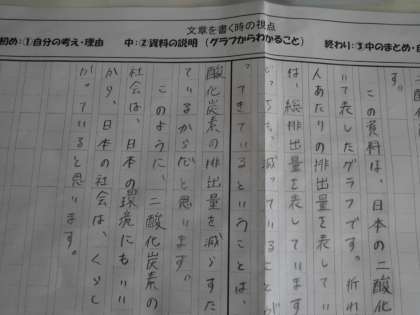 文章を書く時の視点
初め:①自分の考え・理由 中:②資料の説明(グラフからわかること) 終わり:③中のまとめ・自
す。
この資料は、日本の二酸化
いて表したグラフです。折れ
人あたりの排出量を表してい
は、総排出量を表しています
どちらも、減ってい
てきているということは、
酸化炭素の排出量を減らすた
ているからだと思います。
このように、二酸化炭素の
社会は、日本の環境にもいい
から、日本の社会は、くらし
がっていると思います。